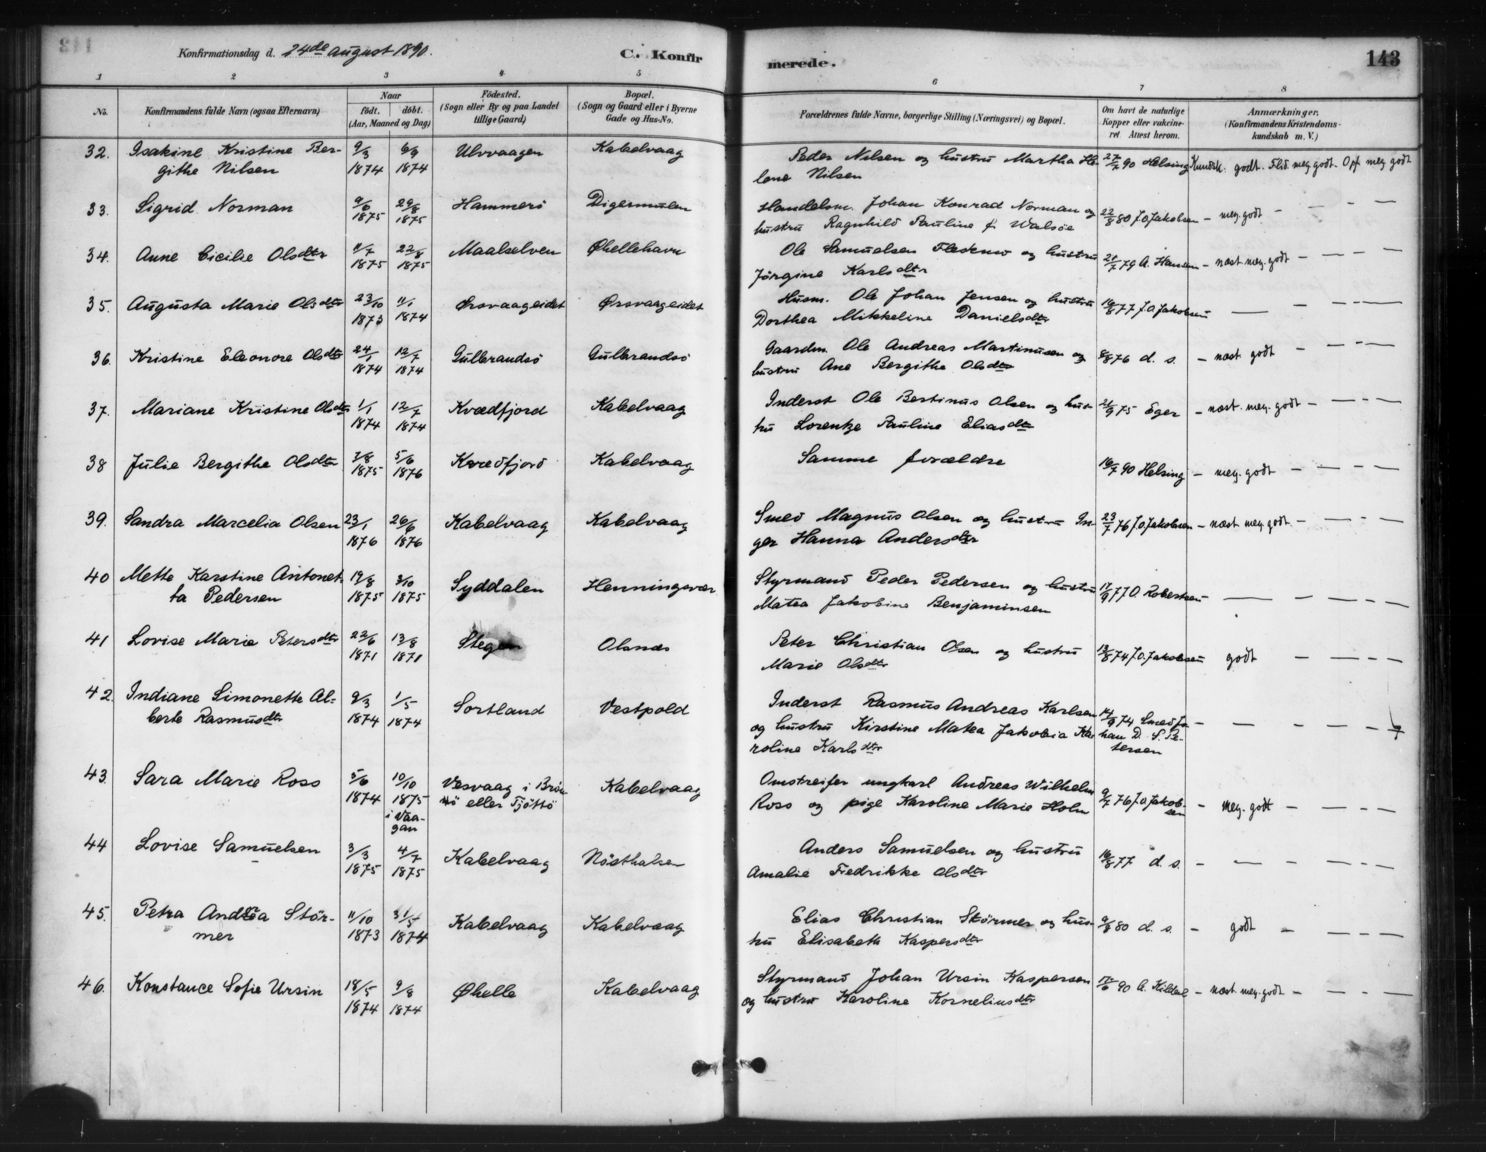 Konfirmationsdag d. 24de august 1890.
C. Konfirmerede.
143
1 2 3 4 5 6 7 8
No.
Konfirmandens fulde Navn (ogsaa Efternavn)
Naar
født. døbt.
(Aar, Maaned og Dag)
Fødested.
(Sogn eller By og paa Landet
tillige Gaard)
Bopæl.
(Sogn og Gaard eller i Byerne
Gade og Hus-No.
Forældrenes fulde Navne, borgerlige Stilling (Næringsvei) og Bopæl.
Om havt de naturlige
Kopper eller vakcineret
Attest herom.
Anmærkninger.
(Konfirmandens Kristendomskundskab
m. V.)
32. Isakine Kristine Bergithe Nilsen 9/3 1874 6/9 1874 Ulvvaagen Kabelvaag Peder Nilsen og hustru Martha Helene Nilsen 27/7 90 Helsing Kundsk. godt. Flid meg godt. Opf meg godt
33. Sigrid Norman 9/6 1875 29/8 1875 Hammerö Digermulen Handelsm. Johan Konrad Norman og hustru Ragnhild Pauline f. Walsöe 22/8 80 J.O. Jakobsen - meg. godt - - - -
34. Anne Cicilie Olsdtr 9/7 1875 22/8 1875 Maalselven Øhellehavn Ole Samuelsen Flesknes og hustru Jørgine Karlsdtr 21/7 79 A. Hansen - næst meg. godt - - - -
35. Augusta Marie Olsdtr 23/10 1873 11/1 1874 Ørsvaageidet Ørsvaageidet Husm. Ole Johan Jensen og hustru Dorthea Mikkeline Danielsdtr 16/8 77 J.O. Jakobsen
36. Kristine Eleonore Olsdtr 24/1 1874 12/7 1874 Gulbrandsö Gulbrandsö Gaardm. Ole Andreas Martinusen og hustru Ane Bergithe Olsdtr 8/8 76 d. s. - næst godt
37. Mariane Kristine Olsdtr 1/1 1874 12/7 1874 Kvædfjord Kabelvaag Inderst Ole Bertinus Olsen og hustru Lorentze Pauline Eliasdtr 21/9 75 Eger - næst. meg. godt
38 Julie Bergithe Olsdtr 2/8 1875 5/6 1876 Kvædfjord Kabelvaag Samme forældre 16/7 90 Helsing - meg. godt
39. Sandra Marcelia Olsen 23/1 1876 26/6 1876 Kabelvaag Kabelvaag Smed Magnus Olsen og hustru Inger Hanna Andersdtr 23/7 76 J.O. Jakobsen - næst meg. godt
40 Mette Karstine Antonetta Pedersen 19/8 1875 3/10 1875 Syddalen Henningsvær Styrmand Peder Pedersen og hustru Matea Jakobine Benjaminsen 17/9 77 O. Robertsen
41 Lovise Marie Petersdtr 22/6 1871 13/8 1871 Stegen Olsnes Peter Christian Olsen og hustru Marie Olsdtr 13/8 74 J.O. Jakobsen godt
42. Indiane Simonette Alberte Rasmusdtr 9/3 1874 1/5 1874 Sortland Vestpold Inderst Rasmus Andreas Karlsen og hustru Kirstine Matea Jakobia Karoline Karlsdtr 14/9 74 Smed Johan D. S. Petersen
43. Sara Marie Ross 5/6 1874 10/10 1875 i Vaagan Vesvaag i Brönnö eller Tjöttö Kabelvaag Omstreifer ungkarl Andreas Wilhelm Ross og pige Karoline Marie Holm 9/7 76 J.O. Jakobsen - meg. godt
44 Lovise Samuelsen 3/3 1875 4/7 1875 Kabelvaag Nösthalsen Anders Samuelsen og hustru Amalie Fredrikke Olsdtr 16/8 77 d. s.
45. Petra Andrea Störmer 11/10 1873 31/5 1874 Kabelvaag Kabelvaag Elias Christian Störmer og hustru Elisabeth Kaspersdtr 9/8 80 d. s. - godt
46. Konstance Sofie Ursin 18/5 1874 9/8 1874 Øhelle Kabelvaag Styrmand Johan Ursin Kaspersen og hustru Karoline Korneliusdtr 17/6 90 A. Kildal - næst meg. godt